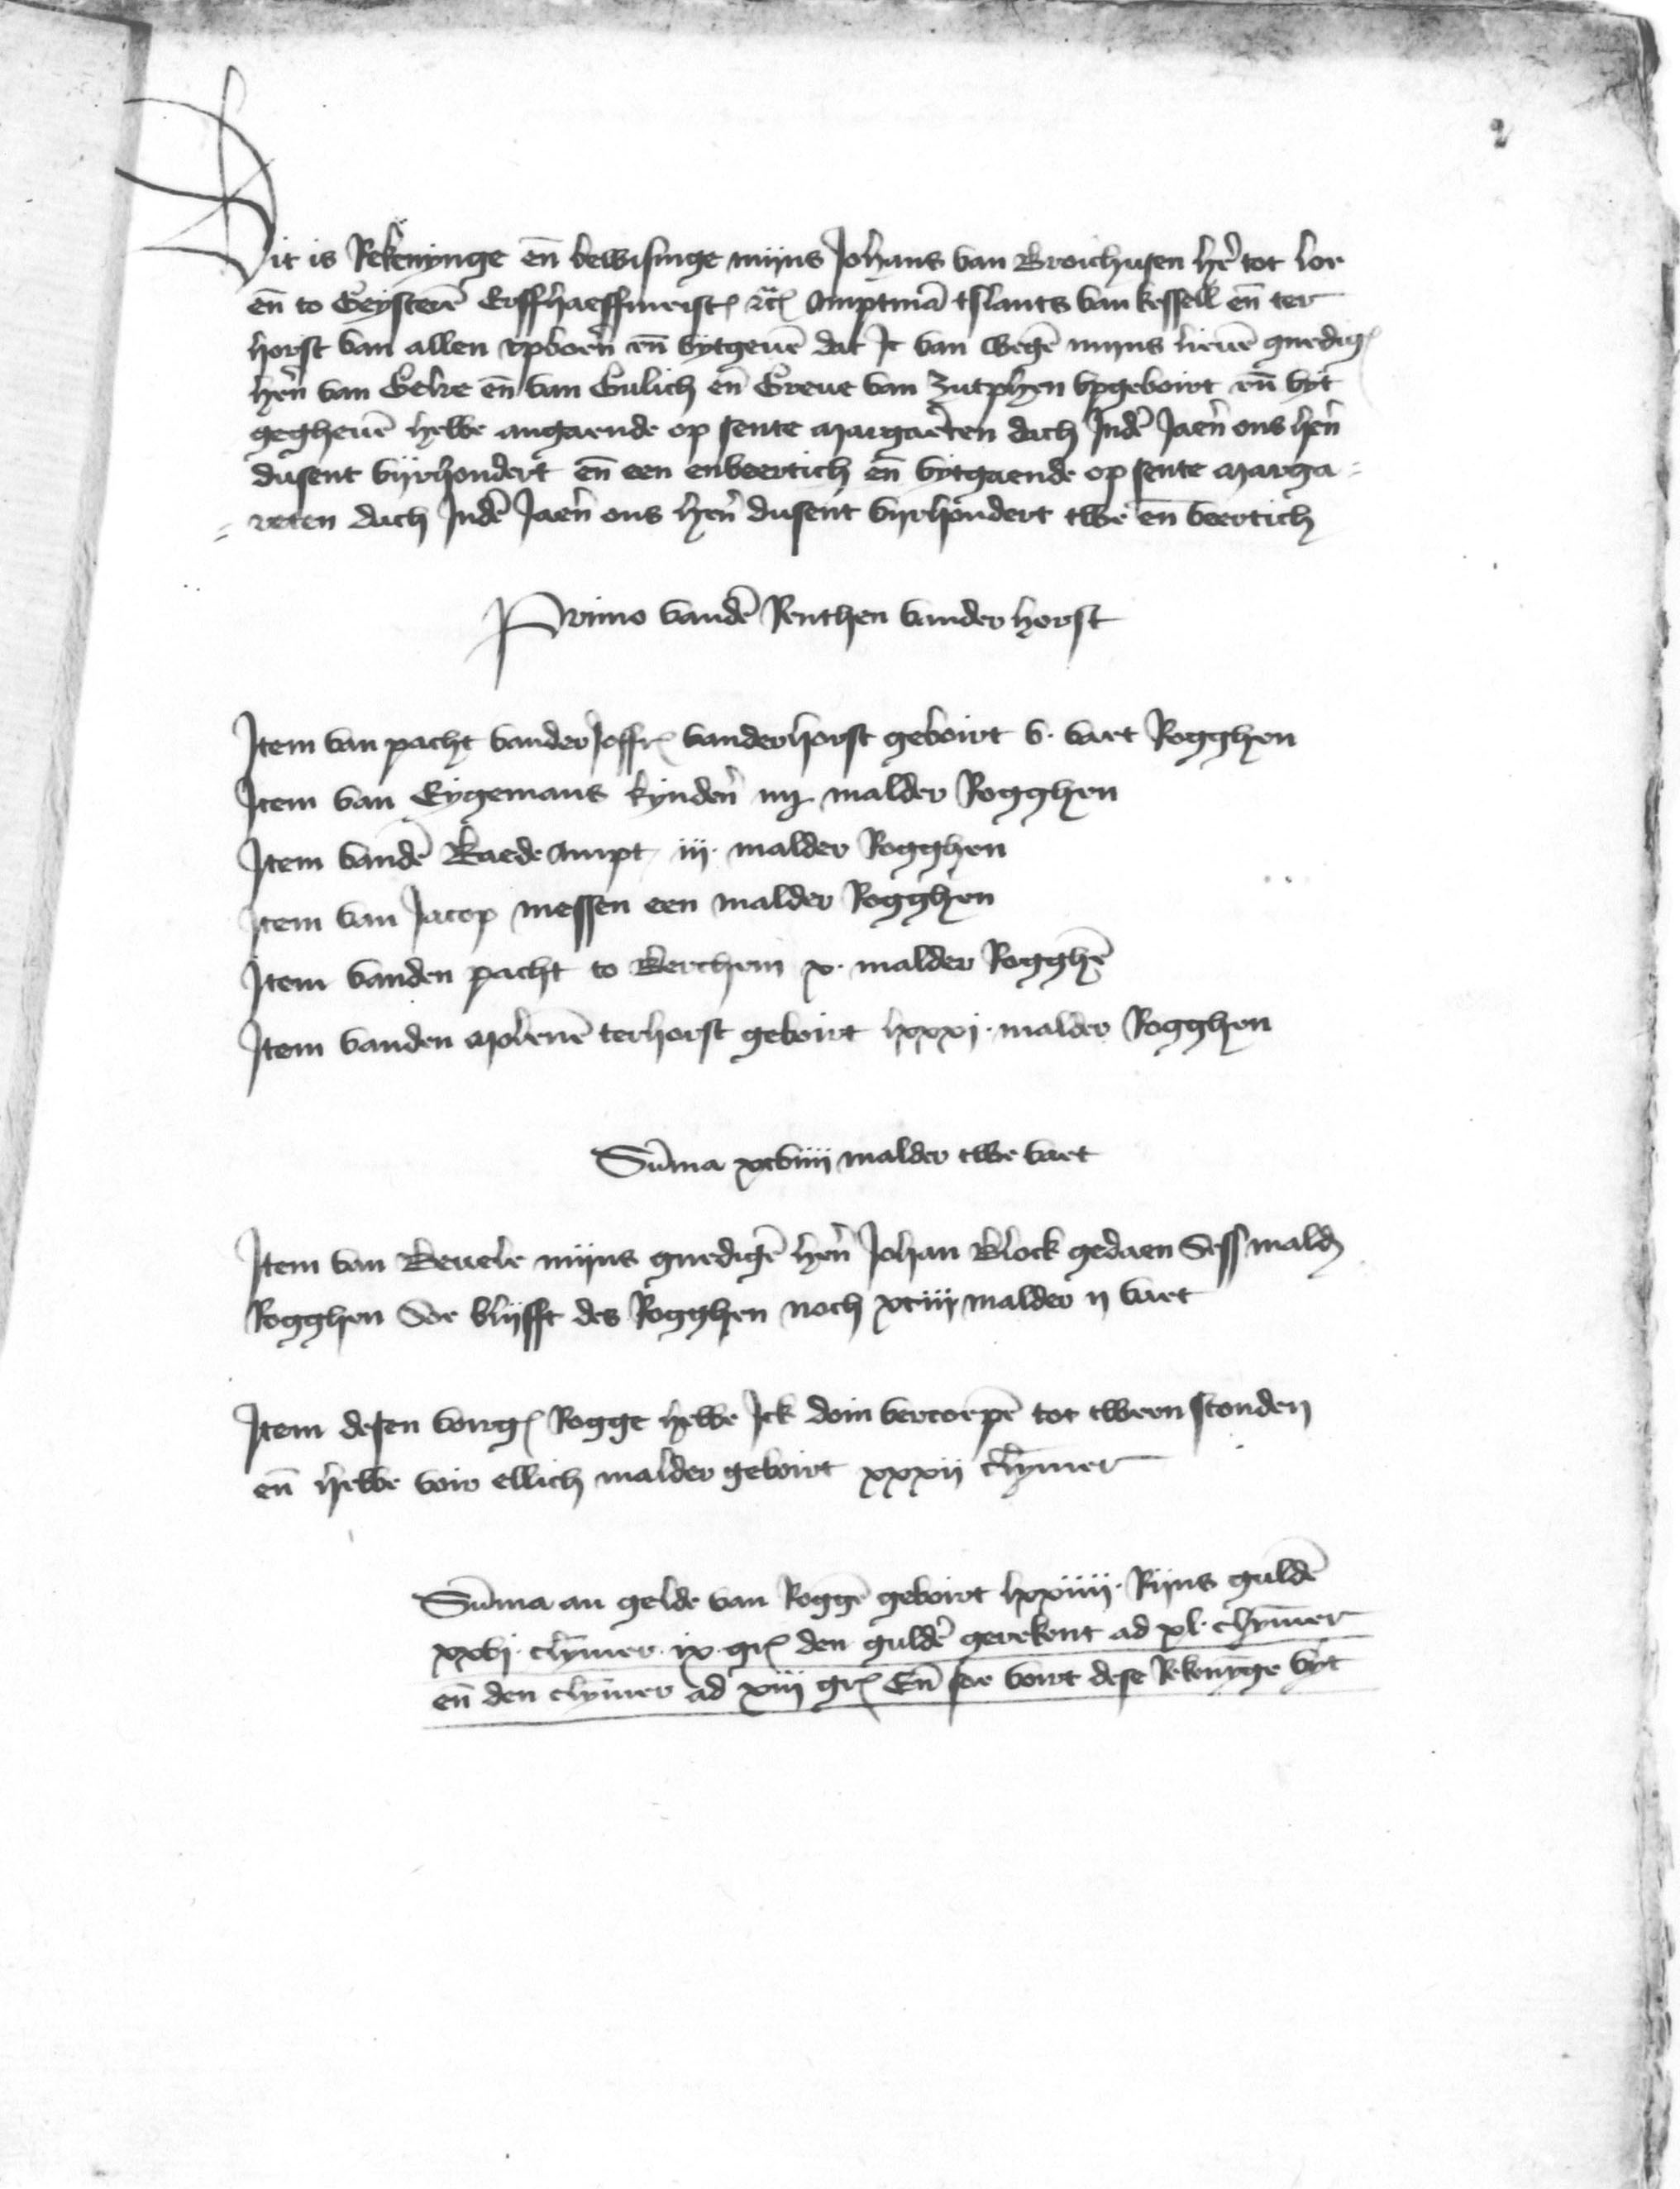 2
Dit is Rekenynge en̄ bewisinge mijns Johans van Broichusen hr̄e tot loe
en̄ to Geystern̄ Erffhaeffmeist̄ etc̄ Amptmā tslants van kessell en̄ ter
horst van allen vpboern̄ en̄ vytgeuē dat Ic van wegē mijns lieuē gnediḡ
hern̄ van Gelre en̄ van Gulich en̄ Greue van Zutphen vpgeboirt en̄ vyt
gegheuē hebbe angaende op sente margareten dach Indē Jaern̄ ons hern̄
dusent vijrhondert en̄ een enveertich en̄ vytgaende op sente marga=
=reten dach Indē Jaern̄ ons hern̄ dusent vijrhondert twe en̄ veertich
Primo vandē Renthen vander horst
Item van pacht vander Joffr̄ vanderhorst geboirt v. vaet Rogghen
Item van Eygemans kyndern̄ iiij malder Rogghen
Item vandē Raede Ampt iij. malder Rogghen
Item van Jacop messen een malder Rogghen
Item vanden pacht to Berchem x. malder Rogghē
Item vanden molenē terhorst geboirt lxxxj. malder Rogghen
Sūma xcviiij malder twe vaet
Item van Beuele mijns gnedigē hern̄ Johan Block gedaen Sess mald̄
Rogghen Soe blijfft des Rogghen noch xciij malder ij vaet
Item desen vorḡ Rogge hebbe Ick doin vercoepē tot tween stonden
en̄ hebbe voir ellich malder geboirt xxxij clȳmer
Sūma an gelde van Roggē geboirt lxxiiij. Rijns guldē
xxvj. clȳmer. ix. gr̄ den guldē gerekent ad xl. clȳmer
en̄ den clȳmer ad xiij gr̄ En̄ soe voirt dese Rekenȳge vyt